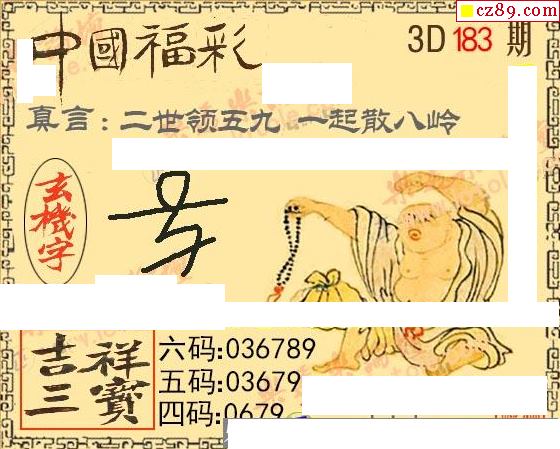 cz89.com
中國福彩
3D 183 期
真言:二世领五九 一起散八岭
玄機字
吉祥
三寶
六码:036789
五码:03679
四码:0679